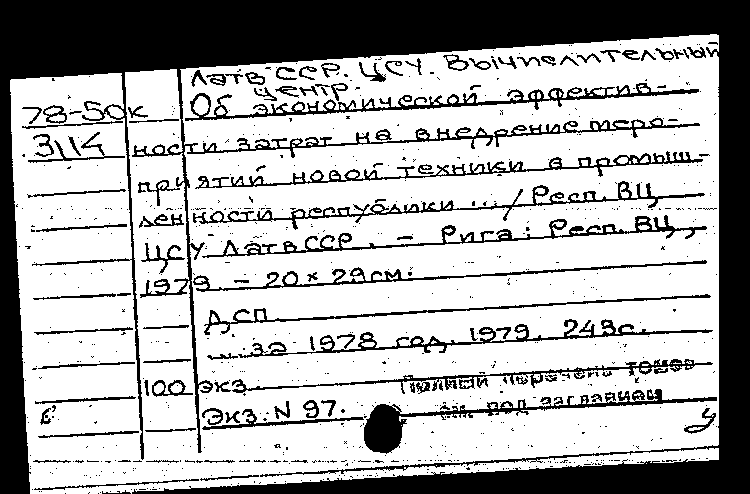 Латв ССР. ЦСУ. Вычислительный
центр.
78-50к Об экономической эффектив-
3114 ности затрат на внедрение меро-
приятий новой техники в промыш-
ленности республики .../ Респ. ВЦ
ЦСУ Латв ССР. - Рига: Респ. ВЦ,
1979 - 20 × 29 см.
ДСП
... за 1978 год. 1979. 243с.
100 экз. Полный перечень томов
Экз. N 97. см. под заглавием